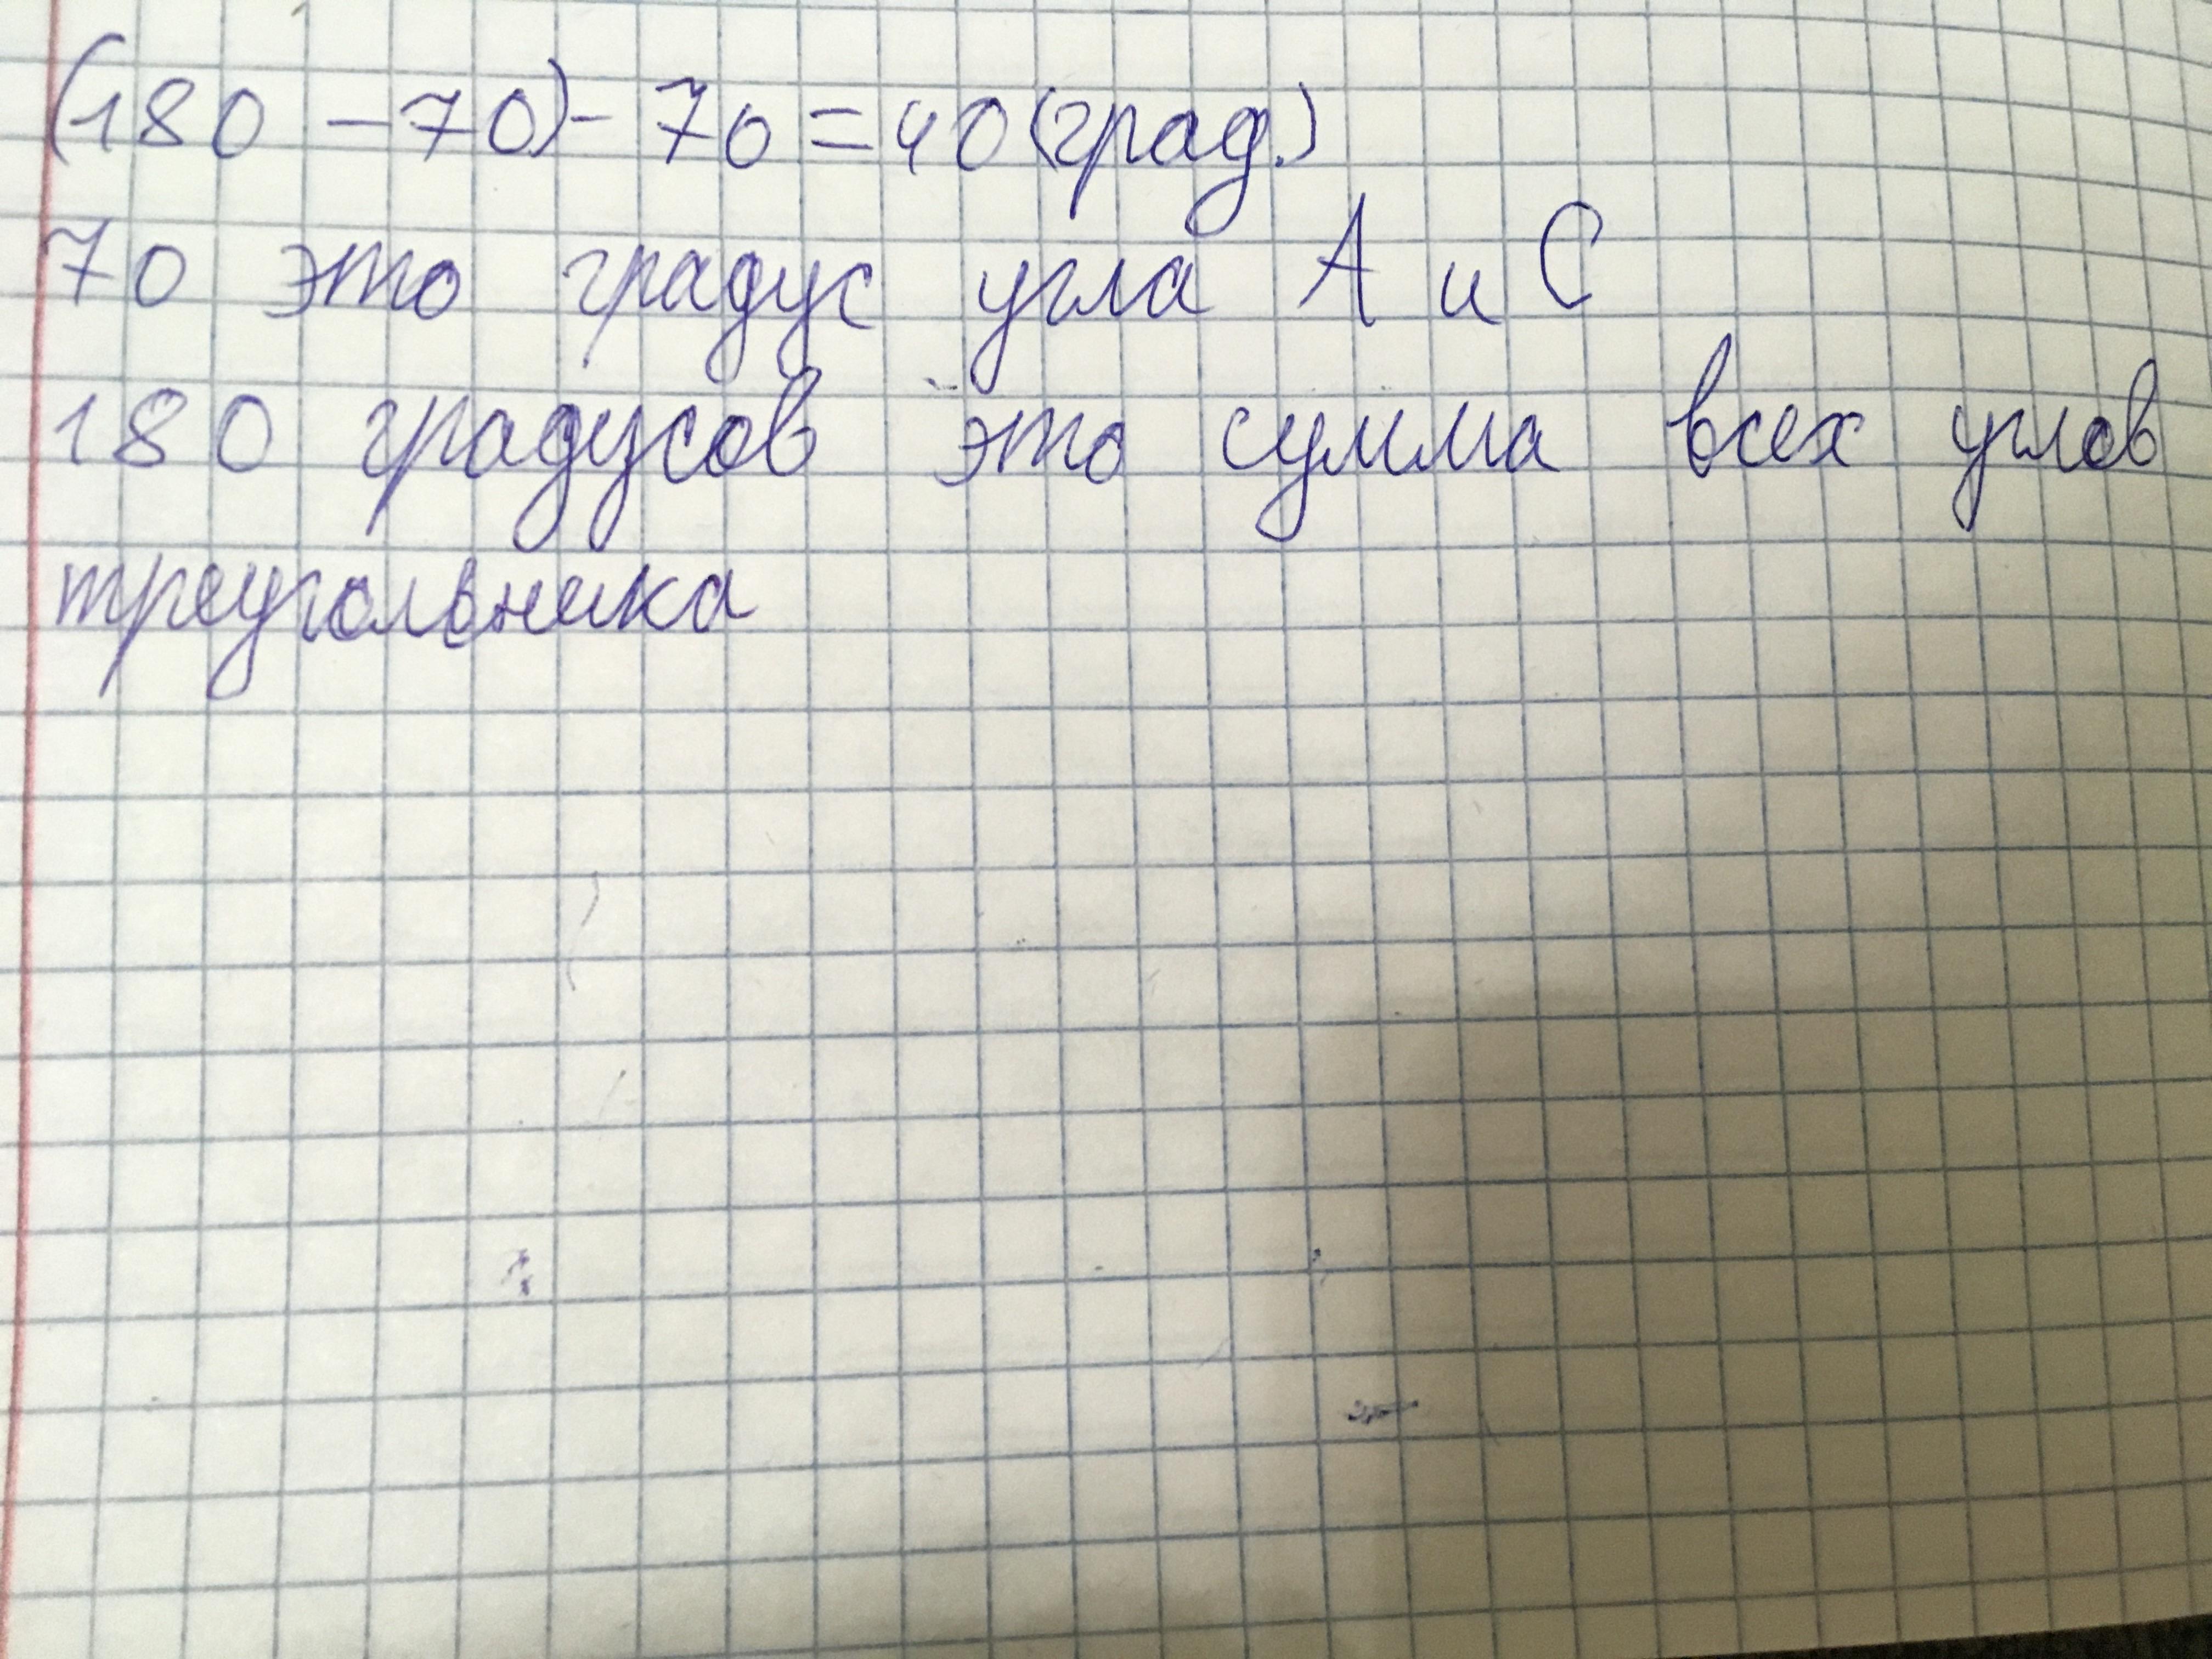 (180 - 70) - 70 = 40 (град.)
70 это градус угла А и С
180 градусов это сумма всех углов
треугольника